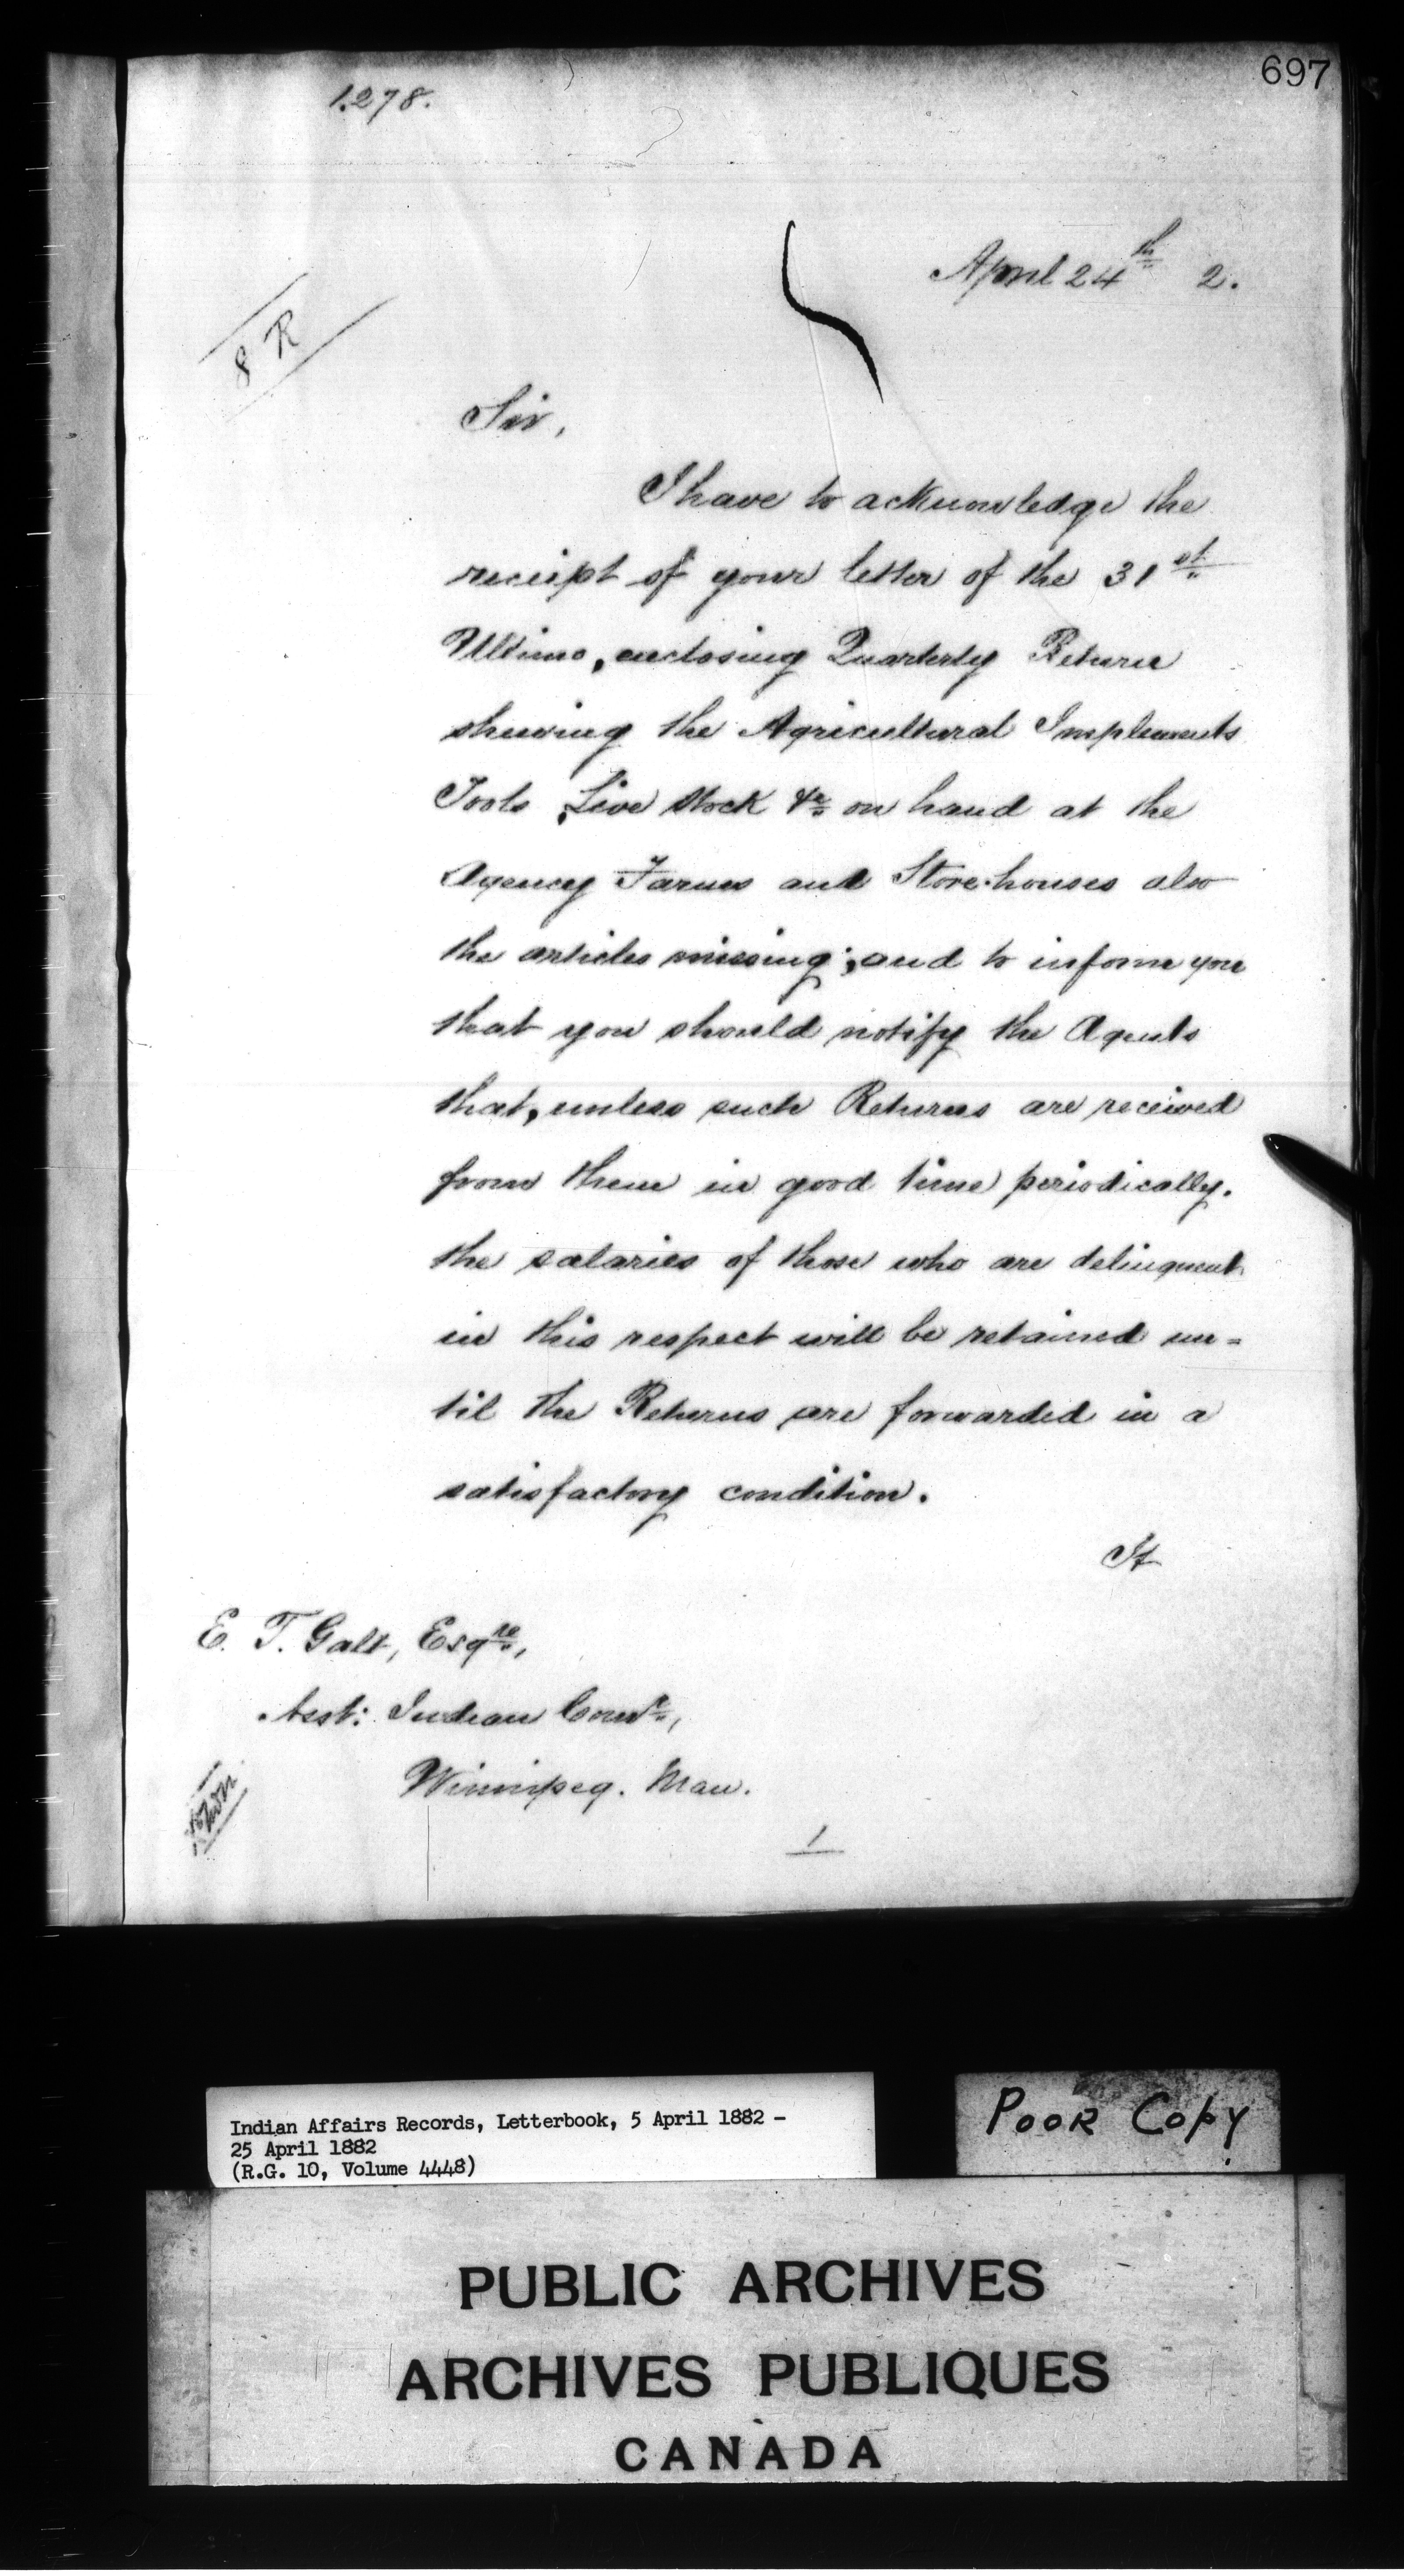 697
1.278.
April 24th 2.
8 R
Sir,
I have to acknowledge the
receipt of your letter of the 31st
Ultimo, enclosing Quarterly Return
shewing the Agricultural Implements
Tools, Live Stock &c on hand at the
Agency Farms and Store-houses also
the articles missing; and to inform you
that you should notify the Agents
that, unless such Returns are received
from them in good time periodically.
the salaries of those who are delinquent
in this respect will be retained un=
til the Returns are forwarded in a
satisfactory condition.
It
E. T. Galt, Esqre,
Asst: Indian Comr,
Winnipeg. Man.
1
Indian Affairs Records, Letterbook, 5 April 1882 -
25 April 1882
(R.G. 10, Volume 4448)
POOR COPY
PUBLIC ARCHIVES
ARCHIVES PUBLIQUES
CANADA